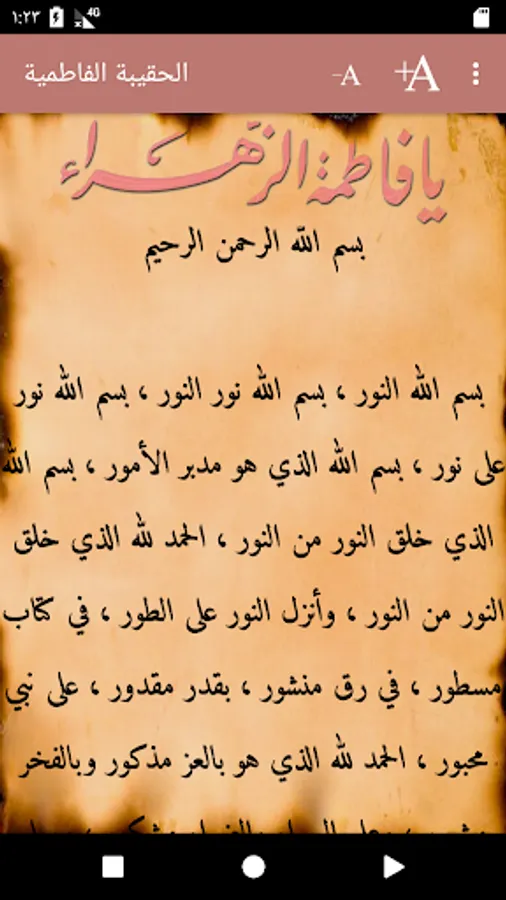 ١:٢٣ 4G
الحقيبة الفاطمية -A +A
يا فاطمة الزهراء
بسم الله الرحمن الرحيم
بسم الله النور ، بسم الله نور النور ، بسم الله نور
على نور ، بسم الله الذي هو مدبر الأمور ، بسم الله
الذي خلق النور من النور ، الحمد لله الذي خلق
النور من النور ، وأنزل النور على الطور ، في كتاب
مسطور ، في رق منشور ، بقدر مقدور ، على نبي
محبور ، الحمد لله الذي هو بالعز مذكور وبالفخر